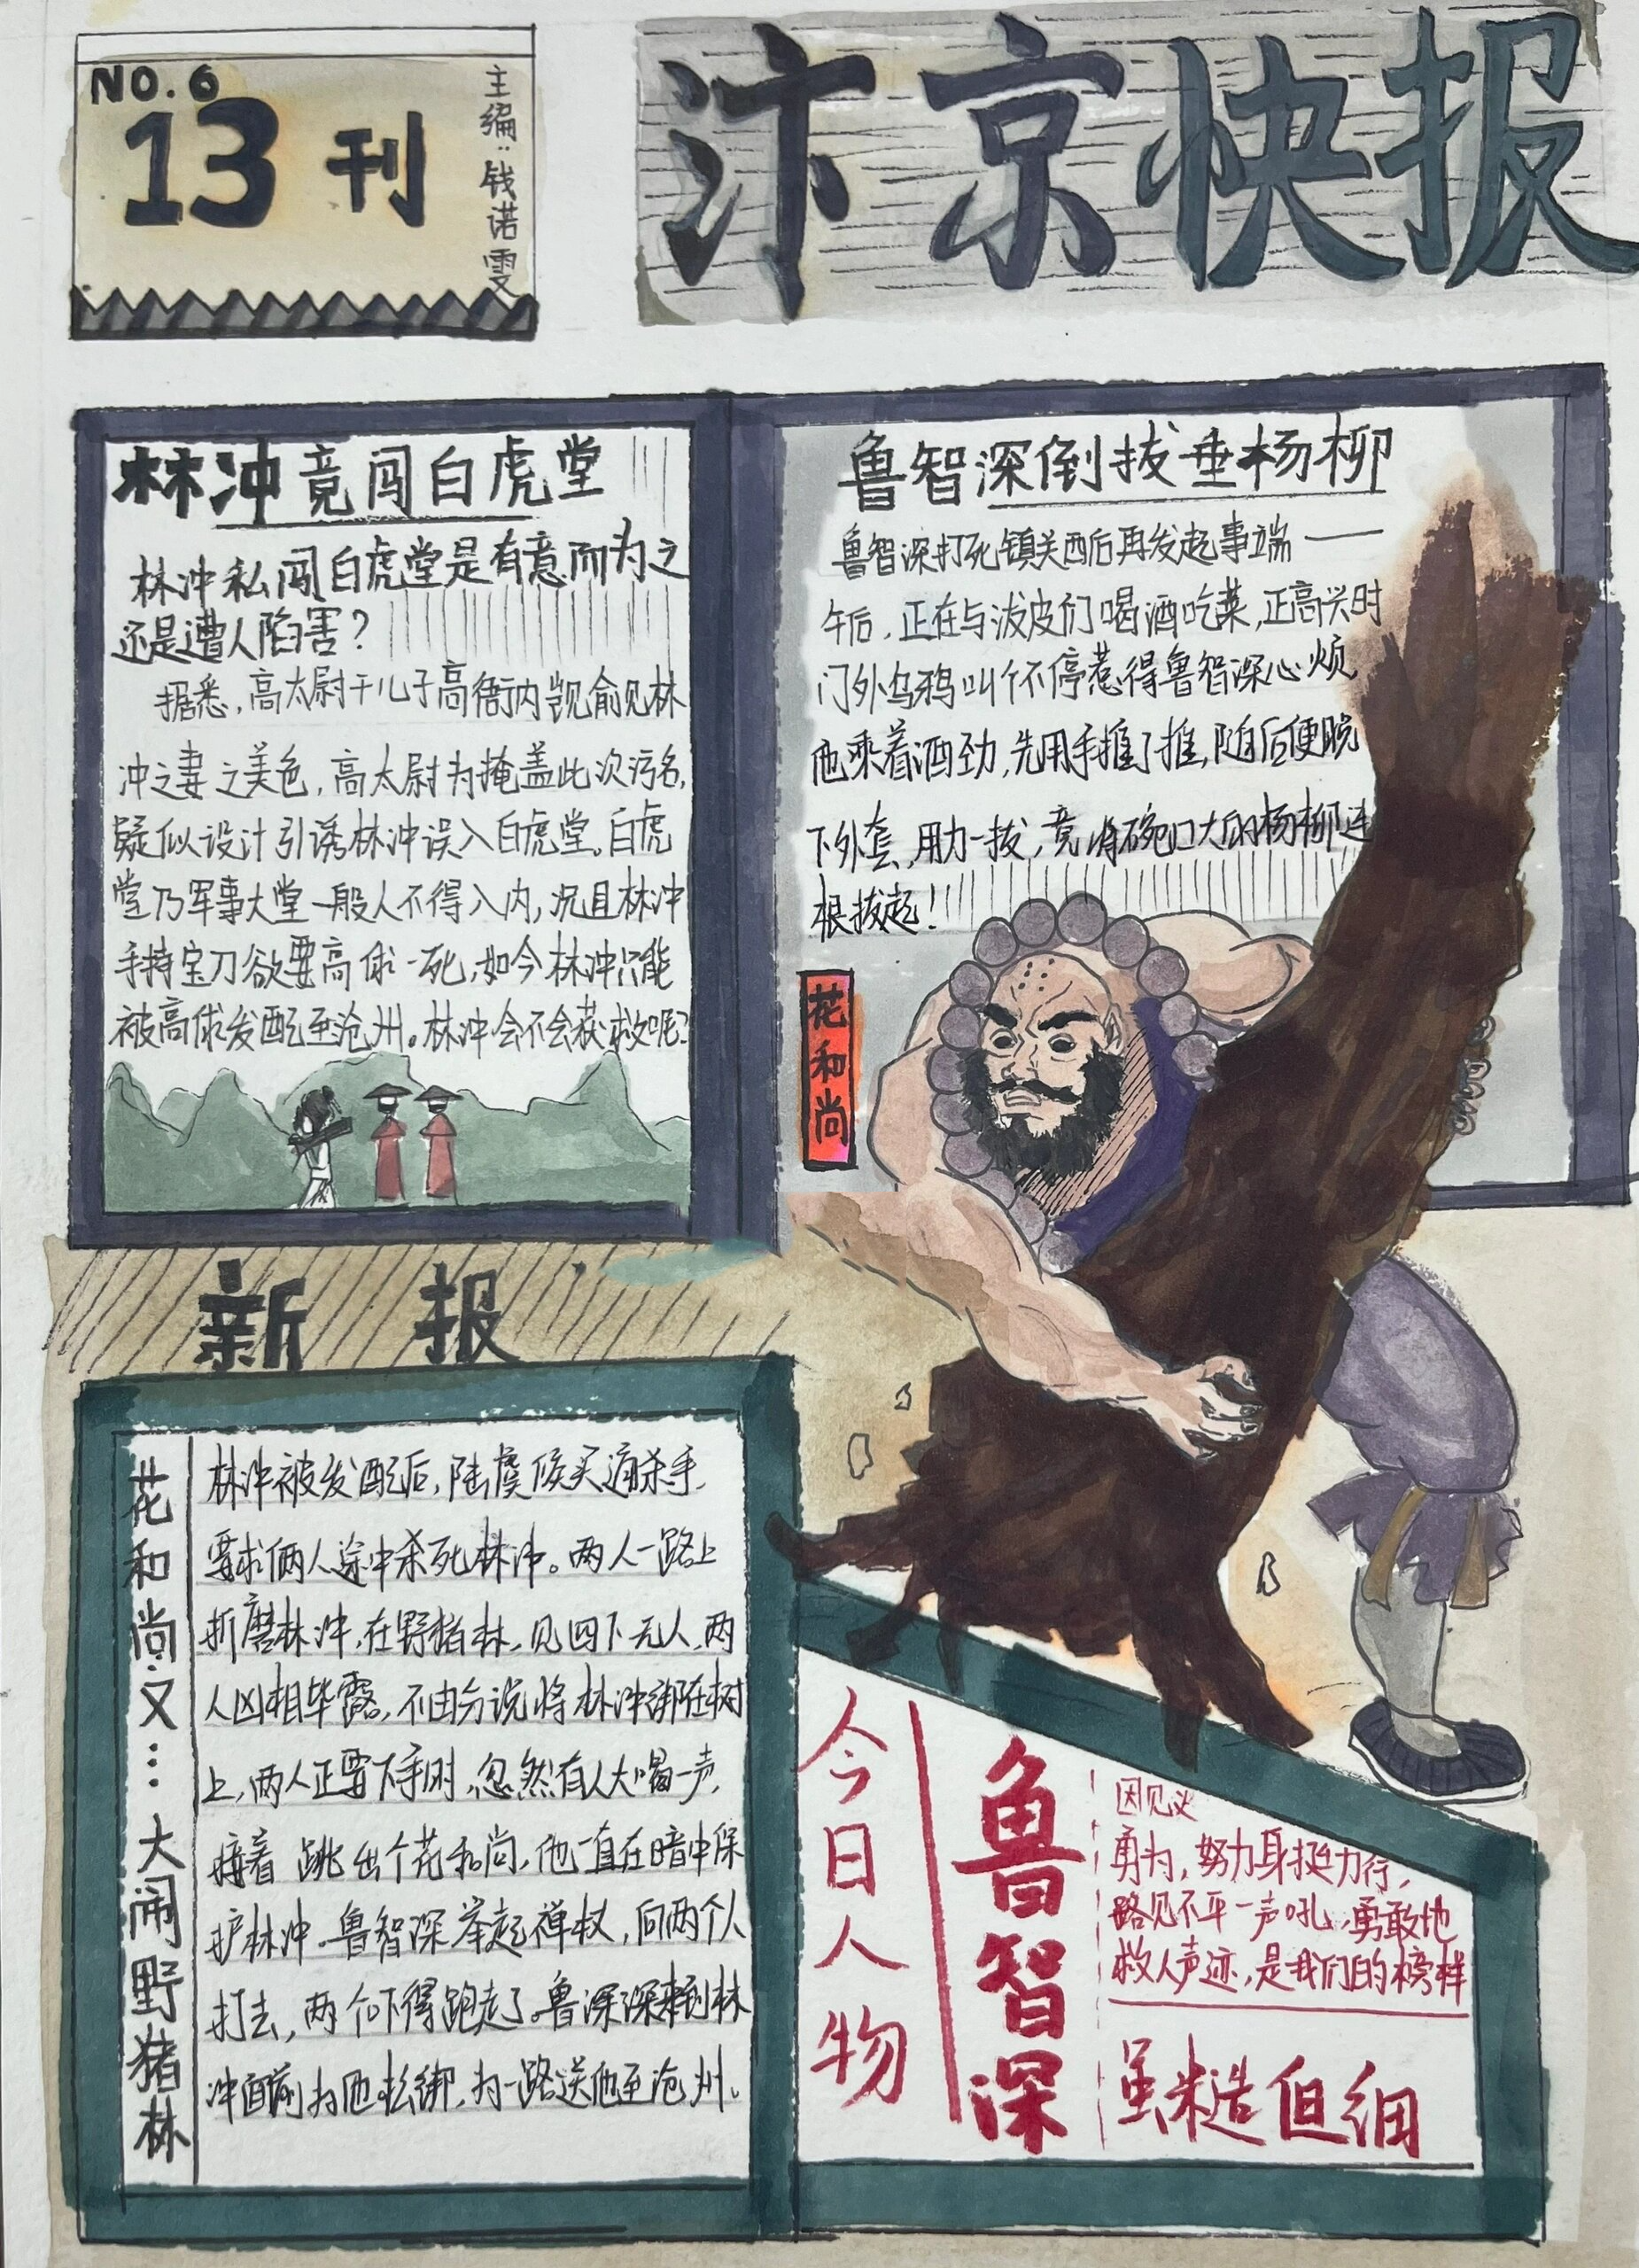 NO.6
13刊
主编:钱诺雯
汴京快报
林冲竟闯白虎堂
林冲私闯白虎堂是有意而为之
还是遭人陷害?
据悉,高太尉干儿子高衙内觊俞见林
冲之妻之美色,高太尉为掩盖此次污名,
疑似设计引诱林冲误入白虎堂。白虎
堂乃军事大堂一般人不得入内,况且林冲
手持宝刀欲要高俅一死,如今林冲只能
被高俅发配至沧州。林冲会不会获救呢?
鲁智深倒拔垂杨柳
鲁智深打死镇关西后再发起事端——
午后,正在与泼皮们喝酒吃菜,正高兴时
门外乌鸦叫个不停惹得鲁智深心烦
他乘着酒劲,先用手推了推,随后便脱
下外套,用力一拔,竟将碗口大的杨柳连
根拔起!
花和尚
新报
花和尚又…大闹野猪林
林冲被发配后,陆虞候买通杀手,
要求俩人途中杀死林冲。两人一路上
折磨林冲,在野猪林,见四下无人,两
人凶相毕露,不由分说将林冲绑在树
上,两人正要下手时,忽然有人大喝一声,
接着跳出个花和尚,他一直在暗中保
护林冲。鲁智深举起禅杖,向两个人
打去,两个吓得跑走了。鲁深深来到林
冲面前为他松绑,为一路送他至沧州。
今日人物
鲁智深
因见义
勇为,努力身挺力行,
路见不平一声吼,勇敢地
救人声迹,是我们的榜样
虽糙但细